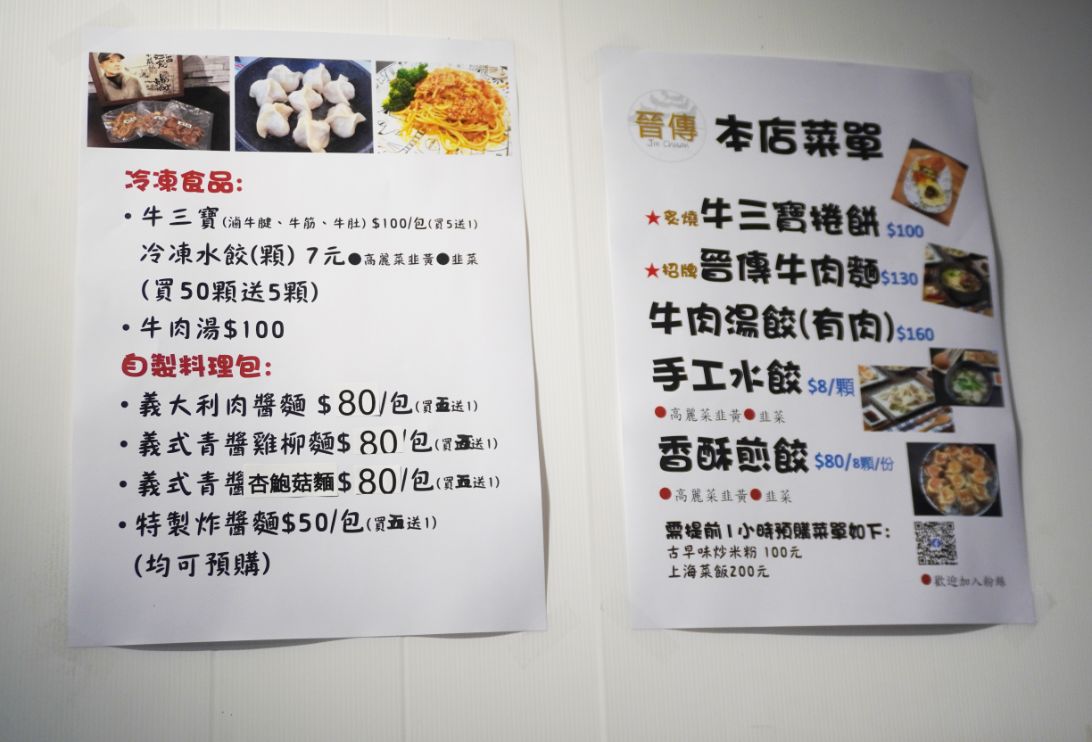 冷凍食品:
・牛三寶(滷牛腱、牛筋、牛肚) $100/包(買5送1)
冷凍水餃(顆) 7元●高麗菜韭黃●韭菜
(買50顆送5顆)
・牛肉湯$100
自製料理包:
・義大利肉醬麵 $80/包(買五送1)
・義式青醬雞柳麵$80/包(買五送1)
・義式青醬杏鮑菇麵$80/包(買五送1)
・特製炸醬麵$50/包(買五送1)
(均可預購)
晉傳
Jin Chuan
本店菜單
★炙燒牛三寶捲餅 $100
★招牌晉傳牛肉麵$130
牛肉湯餃(有肉)$160
手工水餃 $8/顆
●高麗菜韭黃●韭菜
香酥煎餃 $80/8顆/份
●高麗菜韭黃●韭菜
需提前1小時預購菜單如下:
古早味炒米粉 100元
上海菜飯200元
●歡迎加入粉絲